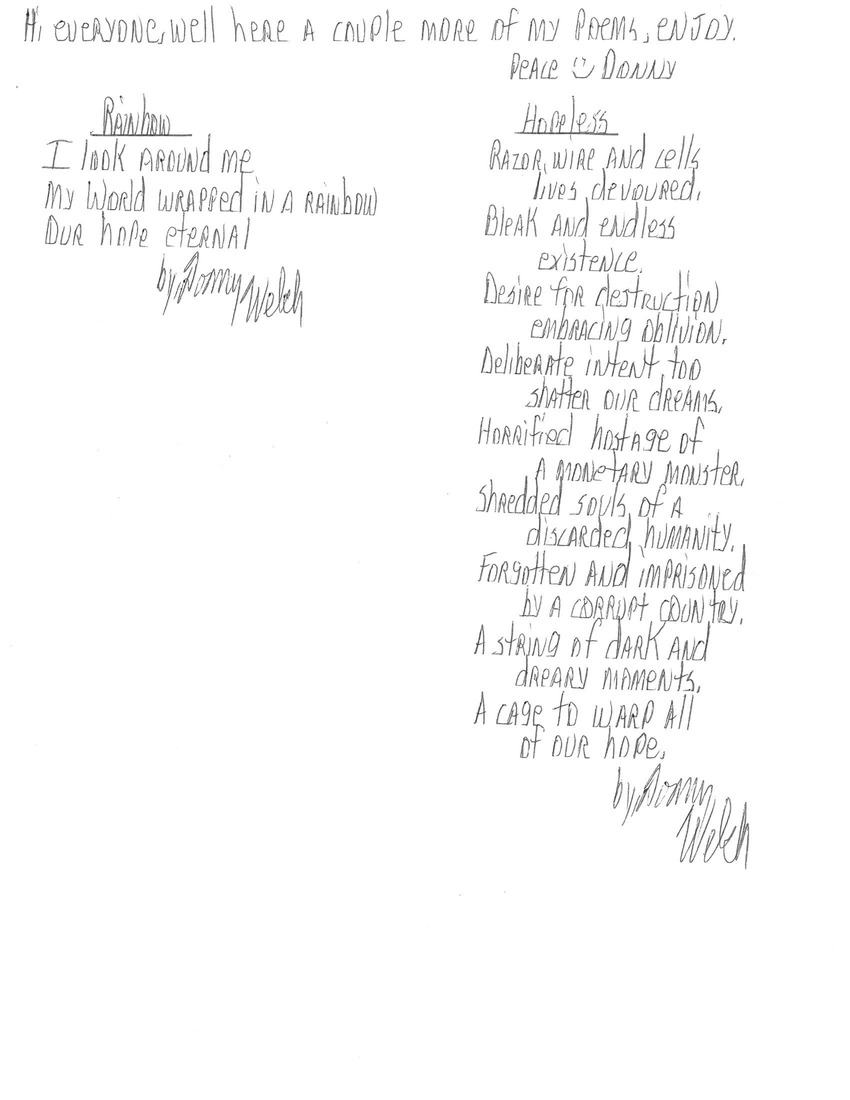 Hi everyone, well here a couple more of my poems, enjoy.
Peace Donny
Rainbow
I look around me
My World wrapped in a rainbow
Our hope eternal
by, Donny Welch
Hopeless
Razor, wire and cells
lives devoured.
Bleak and endless
existence.
Desire for destruction
embracing oblivion.
Deliberate intent too
shatter our dreams.
Horrified hostage of
a monetary monster.
Shredded souls of a
discarded humanity.
Forgotten and imprisoned
by a corrupt country.
A string of dark and
dreary moments.
A cage to warp all
of our hope.
by, Donny
Welch